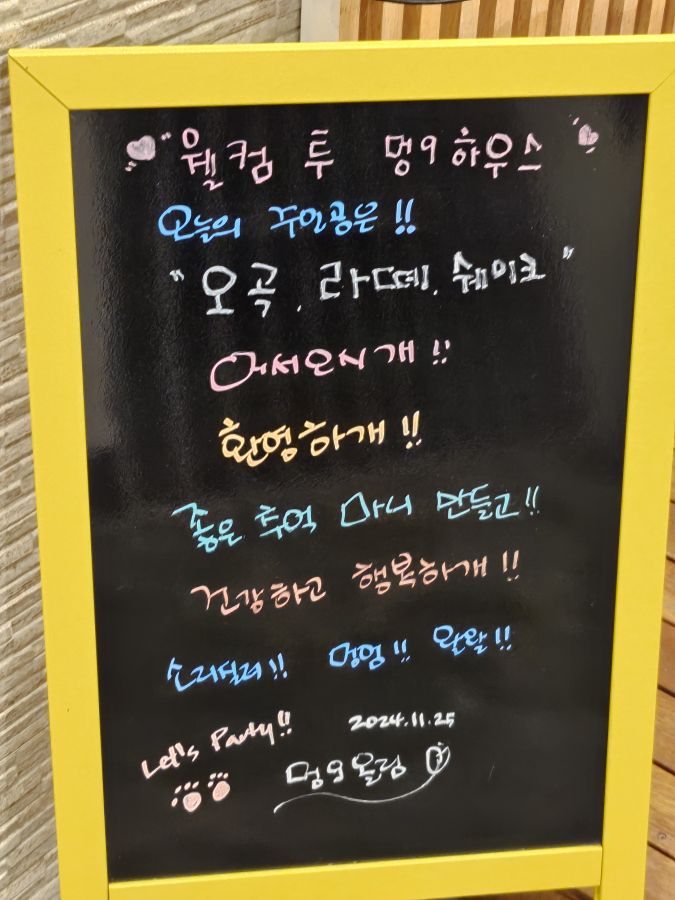 "웰컴 투 멍9하우스"
오늘의 주인공은!!
"오곡, 라떼, 쉐이크"
어서오시개!!
환영하개!!
좋은 추억 마니 만들고!!
건강하고 행복하개!!
소리질러!! 멍멍!! 왈왈!!
Let's Party!! 2024.11.25
멍9올림